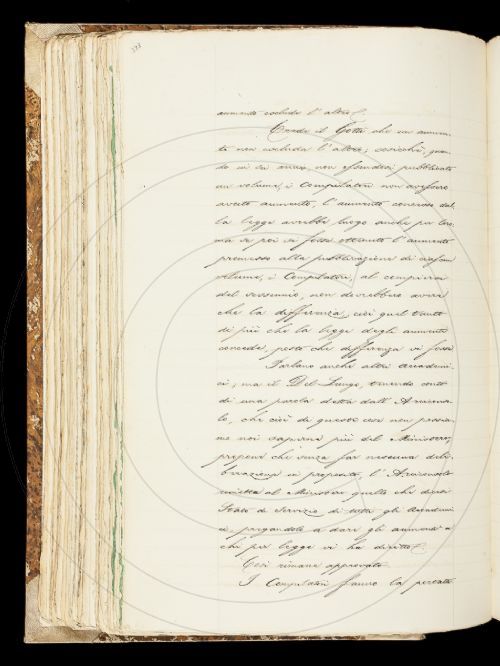 aumento escluda l'altro.
Crede il Gotti che un aumen-
to non escluda l'altro; cosicchè, quan-
do in sei anni non essendosi pubblicato
un volume, i Compilatori non avessero
avuto aumento, l'aumento concesso dal-
la legge avrebbe luogo anche per loro;
ma se poi si fosse ottenuto l'aumento
promesso alla pubblicazione di ciascun
volume, i Compilatori, al compiersi
del sessennio, non dovrebbero avere
che la differenza, cioè quel tanto
di più che la legge degli aumenti
concede, posto che differenza vi fosse.
Parlano anche altri Accademi-
ci; ma il Del Lungo, tenendo conto
di una parola detta dall'Arciconso-
lo, che cioè di queste cose non possia-
mo noi saperne più del Ministero,
propone che senza far nessuna deli-
berazione in proposito, l'Arciconsolo
rimetta al Ministero quello che dicesi
Stato di Servizio di tutti gli Accademi-
ci, pregandolo a dare gli aumenti a
chi per legge vi ha diritto.
Così rimane approvato.
I Compilatori fanno la